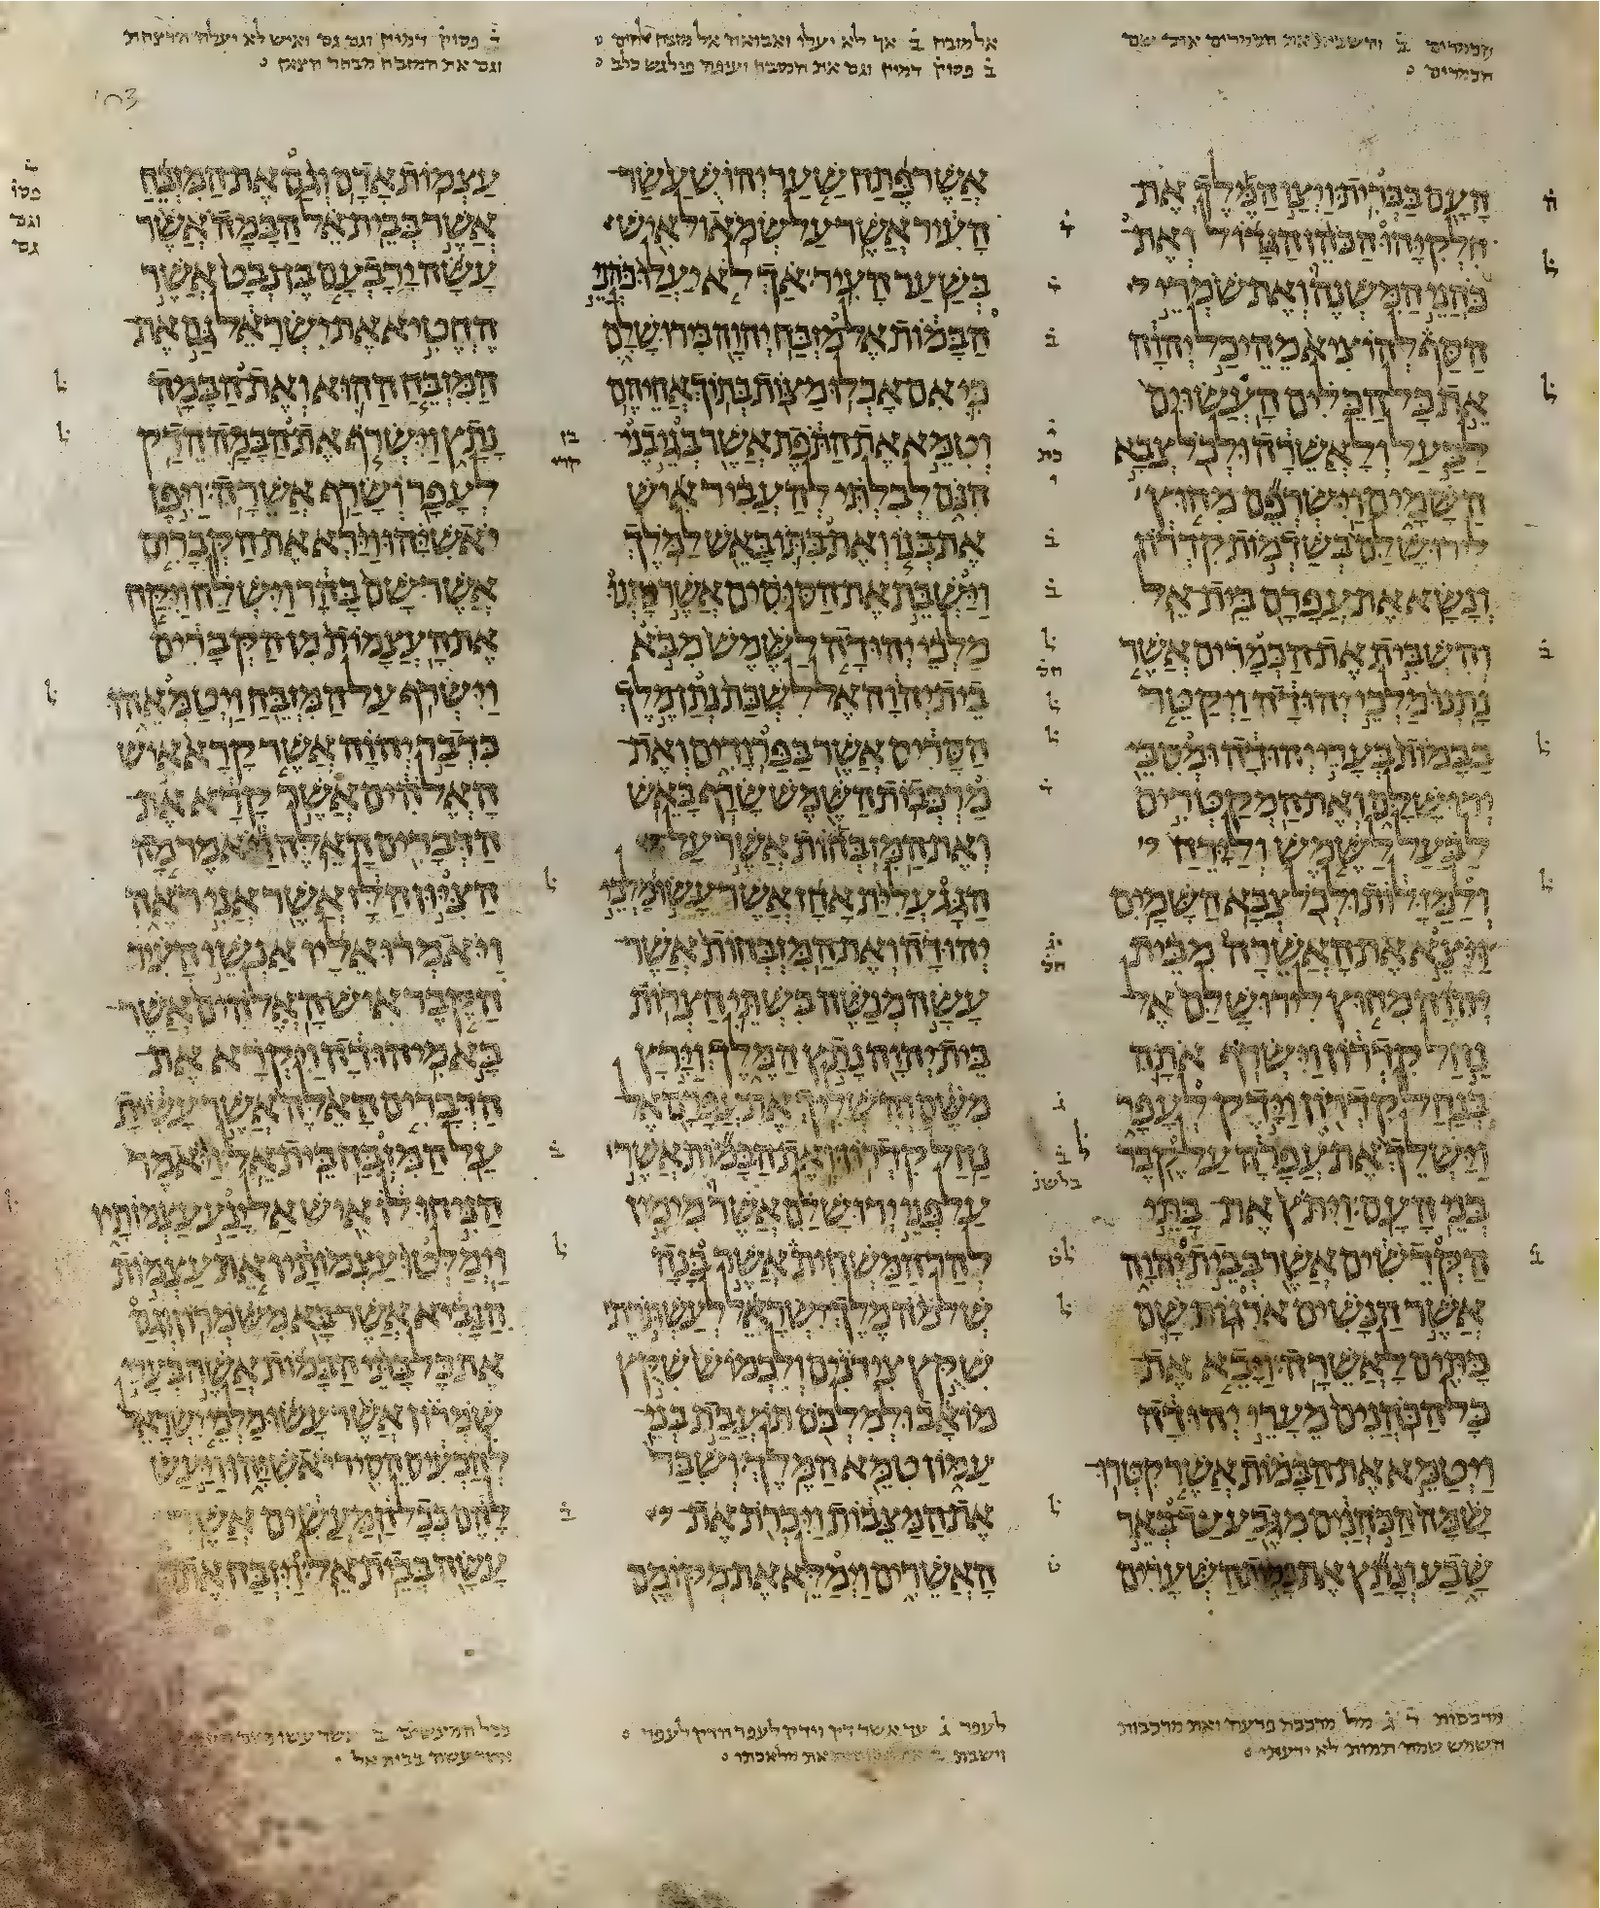 הכמרים ב והשבית את הכמרים את שם
הכמרים
אל מזבח ב אך לא יעלו ואבואה אל מזבח אלהים
ב פסוק דמיין וגם את המזבח ועיפה פילגש כלב
ב פסוק דמיין וגם גם ואיש לא יעלה
וגם את המזבח
העם בברית ויצו המלך את
חלקיהו הכהן הגדול ואת
כהני המשנה ואת שמרי
הסף להוציא מהיכל יהוה
את כל הכלים העשוים
לבעל ולאשרה ולכל צבא
השמים וישרפם מחוץ
לירושלם בשדמות קדרון
ונשא את עפרם בית אל
והשבית את הכמרים אשר
נתנו מלכי יהודה ויקטר
בבמות בערי יהודה ומסבי
ירושלם ואת המקטרים
לבעל לשמש ולירח
ולמזלות ולכל צבא השמים
ויצא את האשרה מבית
יהוה מחוץ לירושלם אל
נחל קדרון וישרף אתה
בנחל קדרון וידק לעפר
וישלך את עפרה על קבר
בני העם ויתץ את בתי
הקדשים אשר בבית יהוה
אשר הנשים ארגות שם
בתים לאשרה ויבא את
כל הכהנים מערי יהודה
ויטמא את הבמות אשר קטרו
שמה הכהנים מגבע עד באר
שבע ונתץ את במות השערים
אשר פתח שער יהושע שר
העיר אשר על שמאול איש
בשער העיר אך לא יעלו כהני
הבמות אל מזבח יהוה בירושלם
כי אם אכלו מצות בתוך אחיהם
וטמא את התפת אשר בגי בני
הנם לבלתי להעביר איש
את בנו ואת בתו באש למלך
וישבת את הסוסים אשר נתנו
מלכי יהודה לשמש מבא
בית יהוה אל לשכת נתן מלך
הסריס אשר בפרורים ואת
מרכבות השמש שרף באש
ואת המזבחות אשר על
הגג עלית אחז אשר עשו מלכי
יהודה ואת המזבחות אשר
עשה מנשה בשתי חצרות
בית יהוה נתץ המלך וירץ
משם והשליך את עפרם אל
נחל קדרון ואת הבמות אשר
על פני ירושלם אשר מימין
להר המשחית אשר בנה
שלמה מלך ישראל לעשתרת
שקץ צידנים ולכמוש שקץ
מואב ולמלכם תועבת בני
עמון טמא המלך ושבר
את המצבות ויכרת את
האשרים וימלא את מקומם
עצמות אדם וגם את המזבח
אשר בבית אל הבמה אשר
עשה ירבעם בן נבט אשר
החטיא את ישראל גם את
המזבח ההוא ואת הבמה
נתץ וישרף את הבמה הדק
לעפר ושרף אשרה ויפן
יאשיהו וירא את הקברים
אשר שם בהר וישלח ויקח
את העצמות מן הקברים
וישרף על המזבח ויטמאהו
כדבר יהוה אשר קרא איש
האלהים אשר קרא את
הדברים האלה ויאמר מה
הציון הלז אשר אני ראה
ויאמרו אליו אנשי העיר
הקבר איש האלהים אשר
בא מיהודה ויקרא את
הדברים האלה אשר עשית
על המזבח בית אל ויאמר
הניחו לו איש אל ינע עצמותיו
וימלטו עצמותיו את עצמות
הנביא אשר בא משמרון וגם
את כל בתי הבמות אשר בערי
שמרון אשר עשו מלכי ישראל
להכעיס הסיר יאשיהו ויעש
להם ככל המעשים אשר
עשה בבית אל ויזבח את
מרכבות ד מל מרכבת פרעה ואת מרכבות
השמש שמה תמות לא ידעתי
לעפר ג עד אשר דק וידק לעפר הדק לעפר
וישבת ב את מלאכתו
ככל המעשים ב אשר עשו
אשר עשה בבית אל